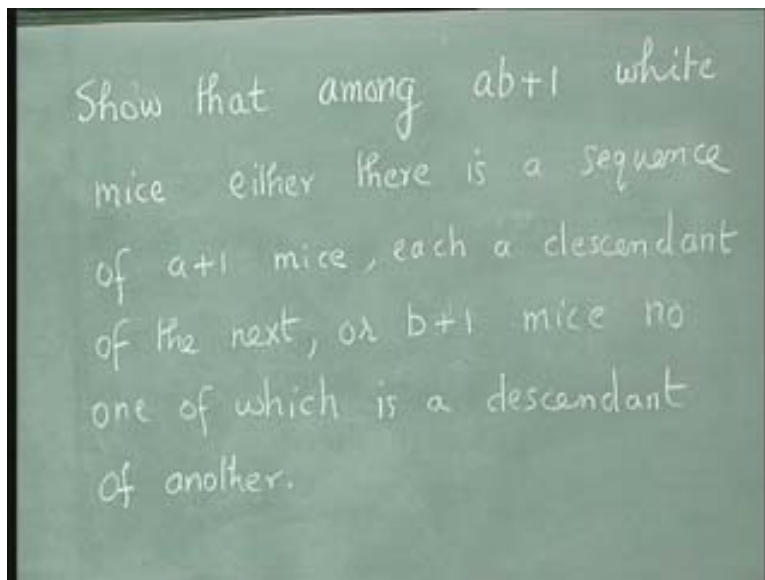 Show that among ab+1 white
mice either there is a sequence
of a+1 mice, each a descendant
of the next, or b+1 mice no
one of which is a descendant
of another.